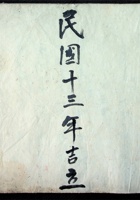 民國十三年吉立